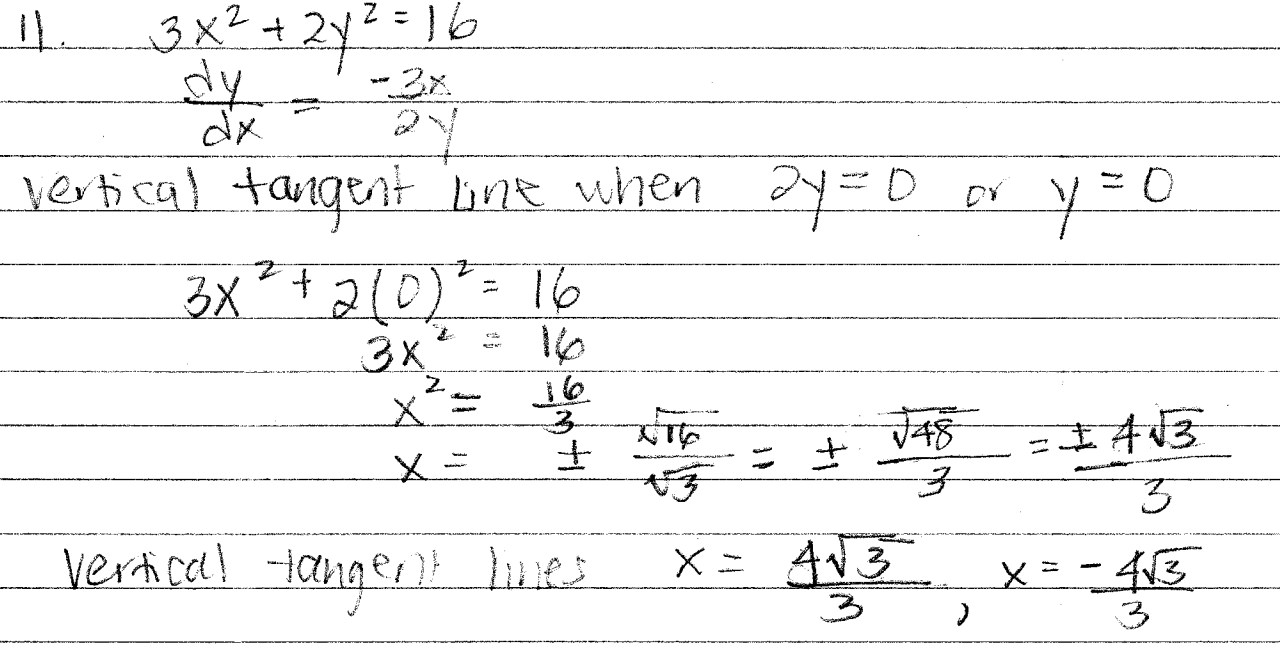 11. 3x² + 2y² = 16
dy/dx = -3x/2y
vertical tangent line when 2y = 0 or y = 0
3x² + 2(0)² = 16
3x² = 16
x² = 16/3
x = ± √16/√3 = ± √48/3 = ± 4√3/3
vertical tangent lines x = 4√3/3 , x = - 4√3/3